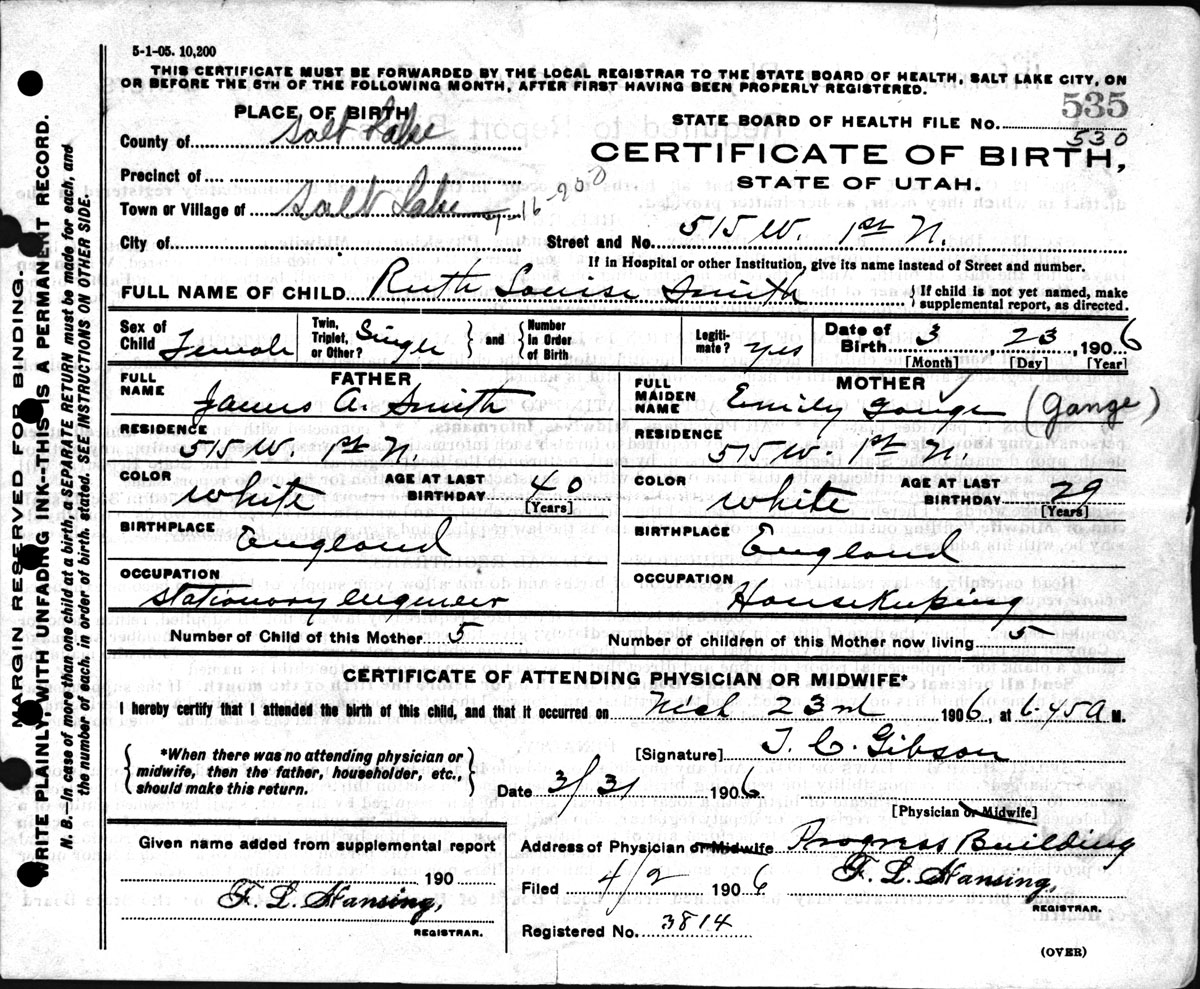 5-1-05. 10,200
THIS CERTIFICATE MUST BE FORWARDED BY THE LOCAL REGISTRAR TO THE STATE BOARD OF HEALTH, SALT LAKE CITY, ON
OR BEFORE THE 5TH OF THE FOLLOWING MONTH, AFTER FIRST HAVING BEEN PROPERLY REGISTERED.
PLACE OF BIRTH
County of Salt Lake
STATE BOARD OF HEALTH FILE NO. 535
530
CERTIFICATE OF BIRTH,
STATE OF UTAH.
Precinct of
Town or Village of Salt Lake 16-200
City of
Street and No. 515 W. 1st N.
If in Hospital or other Institution, give its name instead of Street and number.
FULL NAME OF CHILD Ruth Louise Smith { If child is not yet named, make supplemental report, as directed.
Sex of Child Female
Twin, Triplet, or Other? Single } and { Number in Order of Birth
Legitimate? yes
Date of Birth 3 23, 1906
[Month] [Day] [Year]
FATHER
FULL NAME James A. Smith
RESIDENCE 515 W. 1st N.
COLOR White
AGE AT LAST BIRTHDAY 40 [Years]
BIRTHPLACE England
OCCUPATION Stationary engineer
MOTHER
FULL MAIDEN NAME Emily Gange (Gange)
RESIDENCE 515 W. 1st N.
COLOR White
AGE AT LAST BIRTHDAY 29 [Years]
BIRTHPLACE England
OCCUPATION Housekeeping
Number of Child of this Mother 5
Number of children of this Mother now living 5
CERTIFICATE OF ATTENDING PHYSICIAN OR MIDWIFE*
I hereby certify that I attended the birth of this child, and that it occurred on Mch 23rd 1906, at 6:45 A M.
{ *When there was no attending physician or midwife, then the father, householder, etc., should make this return. }
[Signature] T. C. Gibson
Date 3/31 1906
[Physician or Midwife]
Address of Physician or Midwife Progress Building
Given name added from supplemental report
190
F. L. Hansing,
REGISTRAR.
Filed 4/2 1906 F. L. Hansing,
REGISTRAR.
Registered No. 3814
(OVER)
MARGIN RESERVED FOR BINDING.
WRITE PLAINLY, WITH UNFADING INK--THIS IS A PERMANENT RECORD.
N. B. In case of more than one child at a birth, a SEPARATE RETURN must be made for each, and
the number of each, in order of birth, stated. SEE INSTRUCTIONS ON OTHER SIDE.